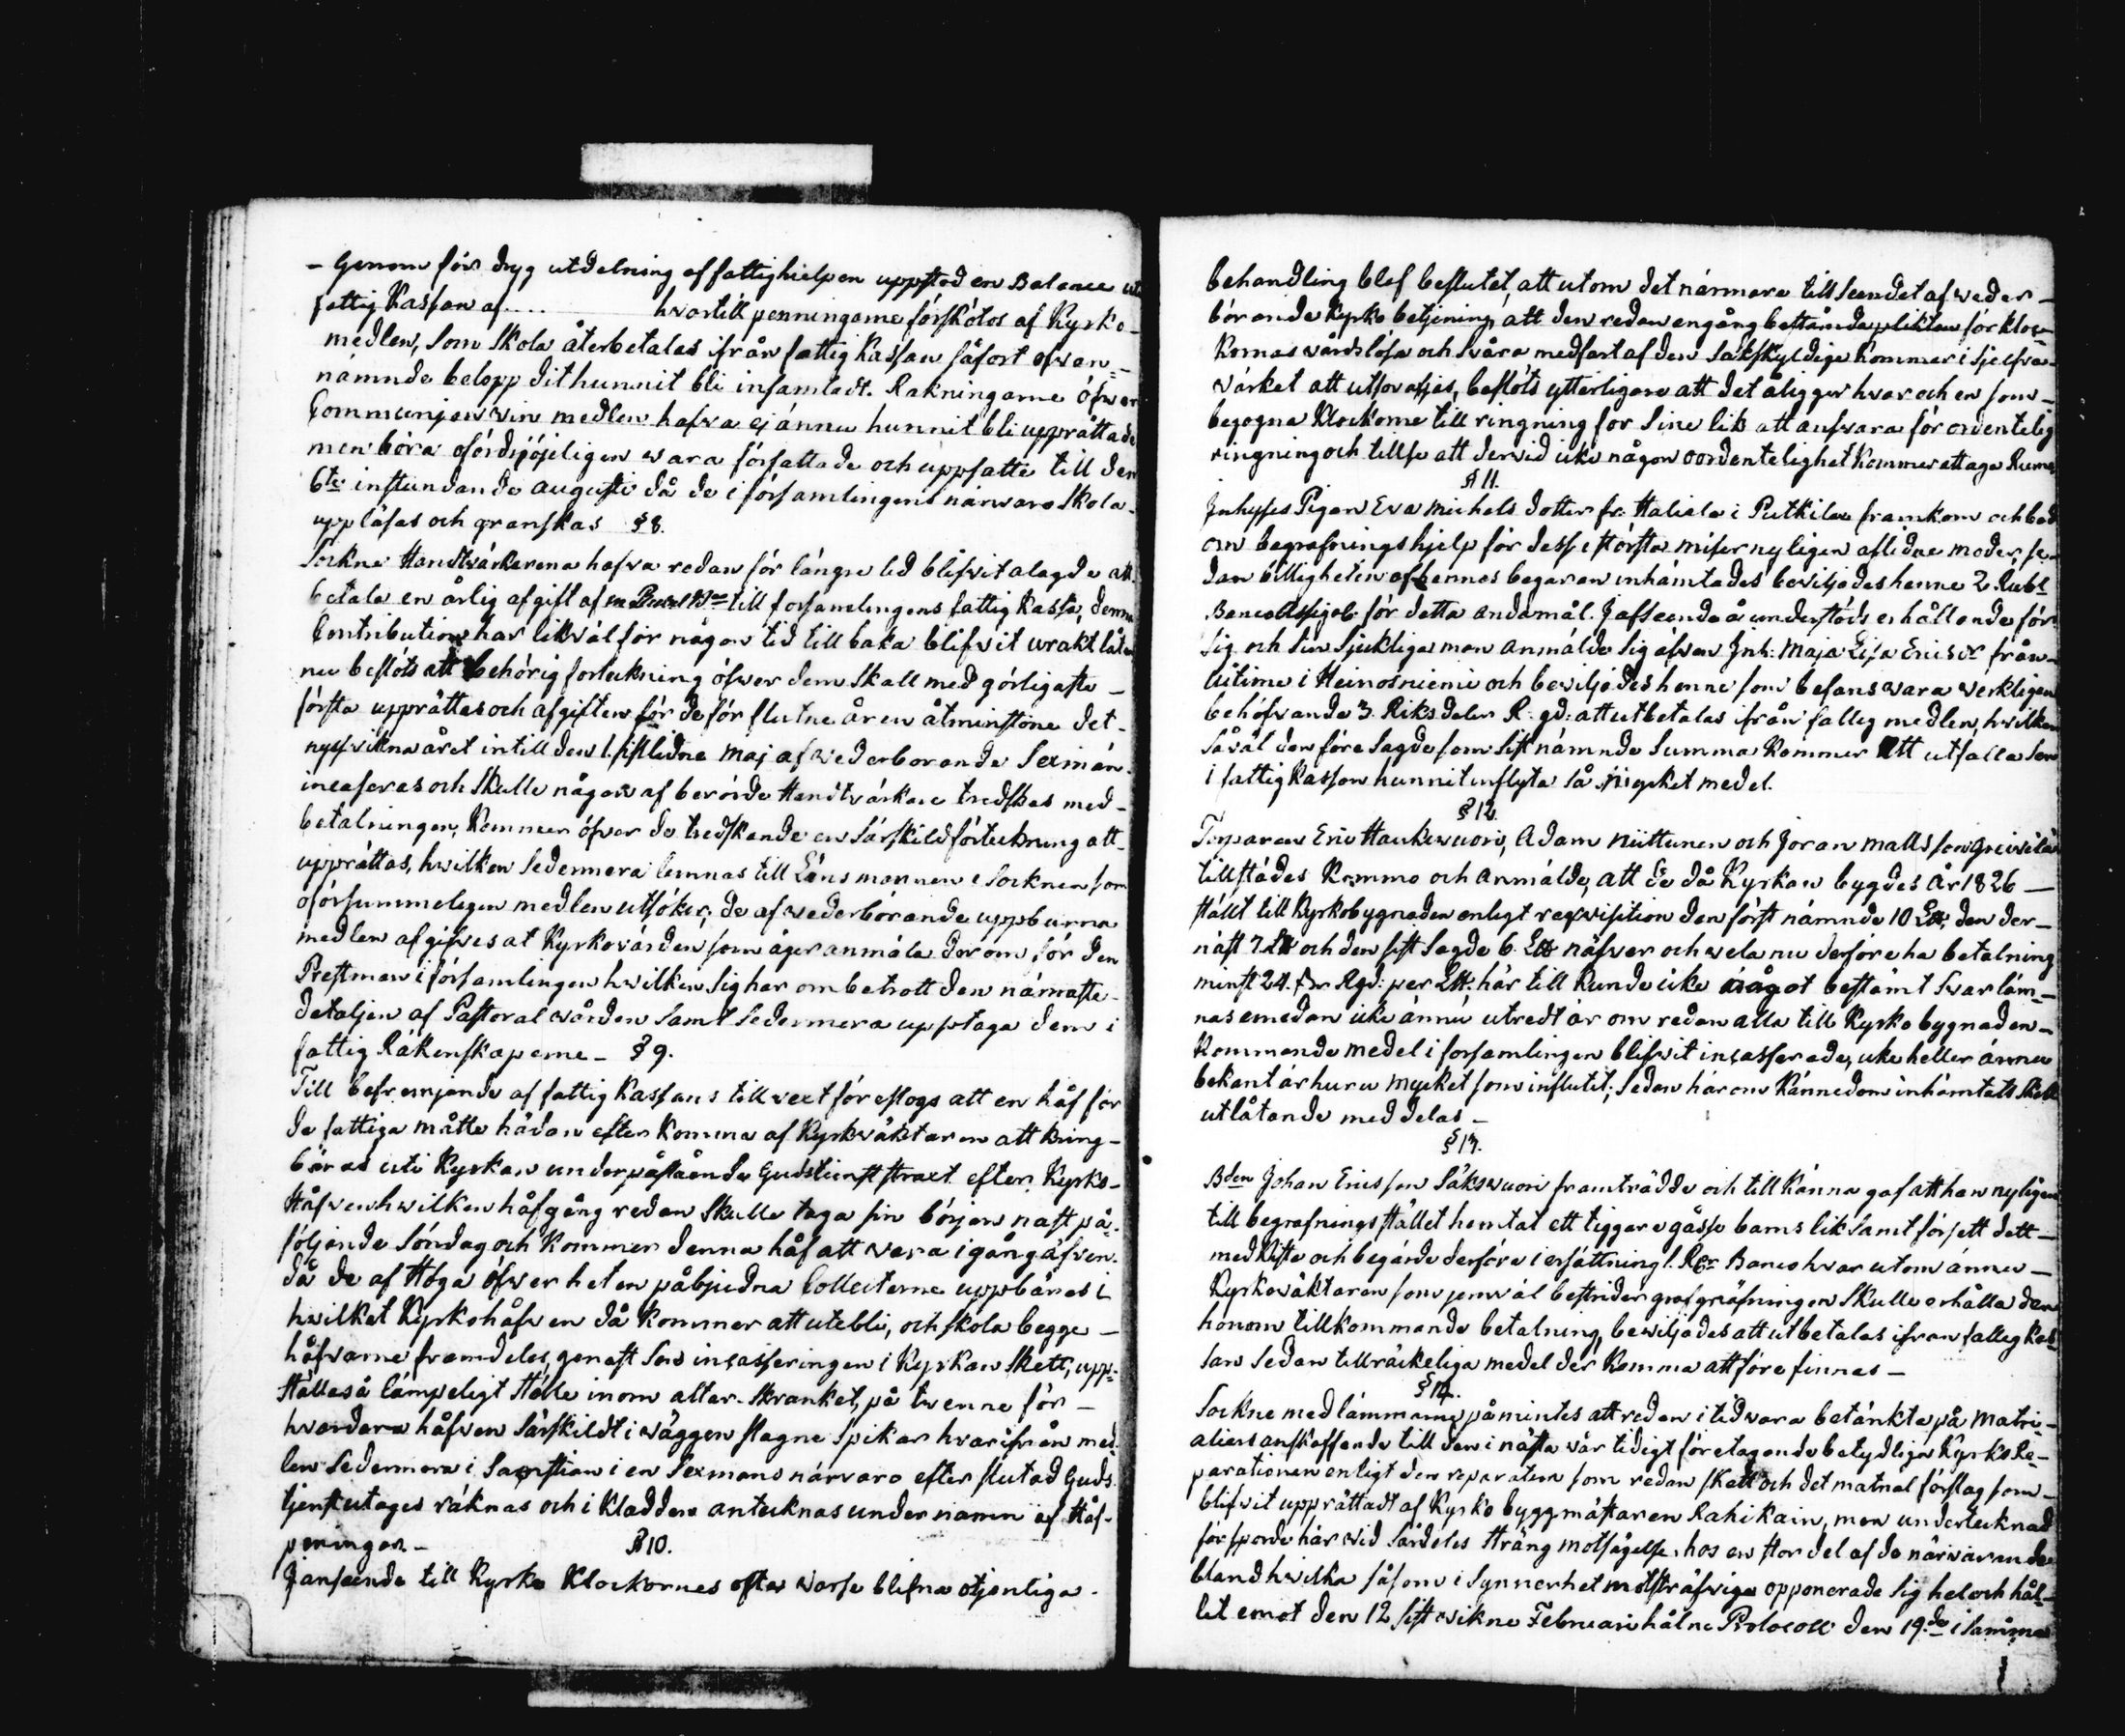 - Genom för dryg utdelning af fattighielpen uppstod en Balance uti
fattig Kassan af.... hvartill penningarne förskötos af Kyrko-
medlen, Som Skola återbetalas ifrån fattig Kassan såfort ofvan-
nämnde belopp dit hunnit bli insamladt. Räkningarne öfwer
Communion vin medlen hafva ej ännu hunnit bli upprättade
men böra ofördröjeligen wara författade och uppsatte till den
6te instundande augusti då de i församlingens närwaro Skola
uppläsas och granskas §8.
Sockne Handtvärkarena hafva redan för längre tid blifvit alagde att
betala en årlig afgift af till församlingens fattig Kassa, denna
Contribution har likväl för någon tid till baka blifvit uraktlåten
nu beslöts att behörig förteckning öfwer dem Skall med görligaste
första upprättas och afgiften för de för flutne åren åtminstone det-
nyss vikna året intill den 1 sistledne Maj af wederborande Sexmän
incaseras och Skulle någon af berörde Handtvärkare tredskas med-
betalningen, Kommer öfver de tredskande en Särskild förteckning att
upprättas, hwilken Sedermera lemnas till Länsmannen i Socknen som
oförsummeligen medlen utsöker; de af wederbörande uppburna
medlen afgifves at Kyrkovärden som äger anmäla derom för den
Prestman i församlingen hwilken Sig har ombetrott den närmaste
detaljen af Pastoral vården Samt Sedermera upptaga dem i
fattig Räkenskaperne - § 9.
Till befremjande af fattig Kassans tillvext föreslogs att en håf för
de fattiga måtte hädan efter Komma af Kyrkväktaren att kring-
bäras uti Kyrkan under påstående Gudstienst straxt efter Kyrko-
Håfven hwilken håfgång redan Skulle taga sin början näst på-
följande Söndag och Kommer denna håf att vara i gång äfven
då de af Höga öfverheten påbjudna Collecterne uppbäras i
hwilket Kyrkohåfven då Kommer att utebli, och skola begge -
håfvarne framdeles, genast Som incasseringen i Kyrkan Skett, upp-
ställas å lämpeligt Ställe inom altar-Skranket, på twenne för -
hvardera håfven Särskildt i väggen slagne Spikar hvarifrån med-
len Sedermera i Sacristian i en Sexmans närvaro efter slutad Guds-
tjenst utages räknas och i Kladden antecknas under namn af Håf-
peningar - §10.
I anseende till Kyrko Klockornes ofta warse blifna otjenliga
behandling blef beslutet, att utom det närmare till Seendet af weder-
börande Kyrko betjening, att den redan engång bestämda plikten för kloc-
kornas vårdslösa och svåra medfart af den Sakskyldige Kommer i sjelfva-
värket att utfordras, beslöts ytterligare att det åligger hvar och en som -
begagna Klockorne till ringning för Sine lik att ansvara för ordentelig
ringning och tillse att dervid icke någon oordentelighet Kommer att äga Rum
§ 11.
Inhyses Pigan Eva Michels dotter fr: Haliala i Putkila framkom och bad
om begrafnings hjelp för dess i största miser nyligen afledne moder, se-
dan billigheten af hennes begäran inhämtades beviljades henne 2. Rubl
Banco Assign: för detta ändamål. I afseende å understöds erhållande för
Sig och Sin Sjukliga man anmälde Sig äfven Inh: Maja Lisa Ericsdr från
i Heinoniemi och beviljades henne som befans vara verkligen
behöfvande 3. Riksdaler R:gd: att utbetalas ifrån fattig medlen, hvilken
Såväl den före Sagde som Sist nämnde Summa Kommer att utfalla Sen
i fattig Kassan hunnit inflyta så mycket medel.
§ 12.
Torparen Eric Haukewuori, Adam Niittunen och Joran Mattsson
tillstädes Kommo och anmälde, att de då Kyrkan bygdes År 1826 -
stält till Kyrkobygnaden enligt reqvisition den först nämnde 10 L℔, den der-
näst 7 L℔ och den sist Sagde 6. L℔ näfver och wela nu derföre ha betalning
minst 24. Rgd: per L℔: här till Kunde icke något bestämt Svar läm-
nas emedan icke ännu utredt är om redan alla till Kyrko bygnaden-
Kommande medel i församlingen blifvit incasserade, icke heller ännu
bekant är huru mycket som influtit; Sedan härom Kännedom inhämtats Skall
utlåtande meddelas -
§ 13.
Bden Johan Ericsson Säkswuori framträdde och till Känna gaf att han nyligen
till begrafnings stället hemtat ett tiggare gåsse barns lik Samt försett dett -
med Kista och begärde derföre i ersättning 1. Rbr Banco hvar utom ännu -
Kyrkoväktaren som jemväl bestrider grafgräfningen Skulle erhålla den
honom tillkommande betalning, beviljades att utbetalas ifran fattig Kas-
san Sedan tillräckeliga medel der Komma att förefinnas -
§ 14.
Sockne medlämmarne påmintes att redan i tid vara betänkta på Matri-
aliers anskaffande till den i nästa vår tidigt företagande betydliga Kyrko Re-
parationen enligt den reparation som redan skett och det matrial förslag som-
blifvit upprättadt af Kyrko byggmästaren Rahikain, men undertecknad
försporde här vid Särdeles Sträng motsägelse, hos en stor del af de närvarande
bland hwilka såsom i Synnerhet motsträfviga opponerade Sig hel och hål-
let emot den 12 sist vikne Februari hålne Protocoll den 19.de i Samma